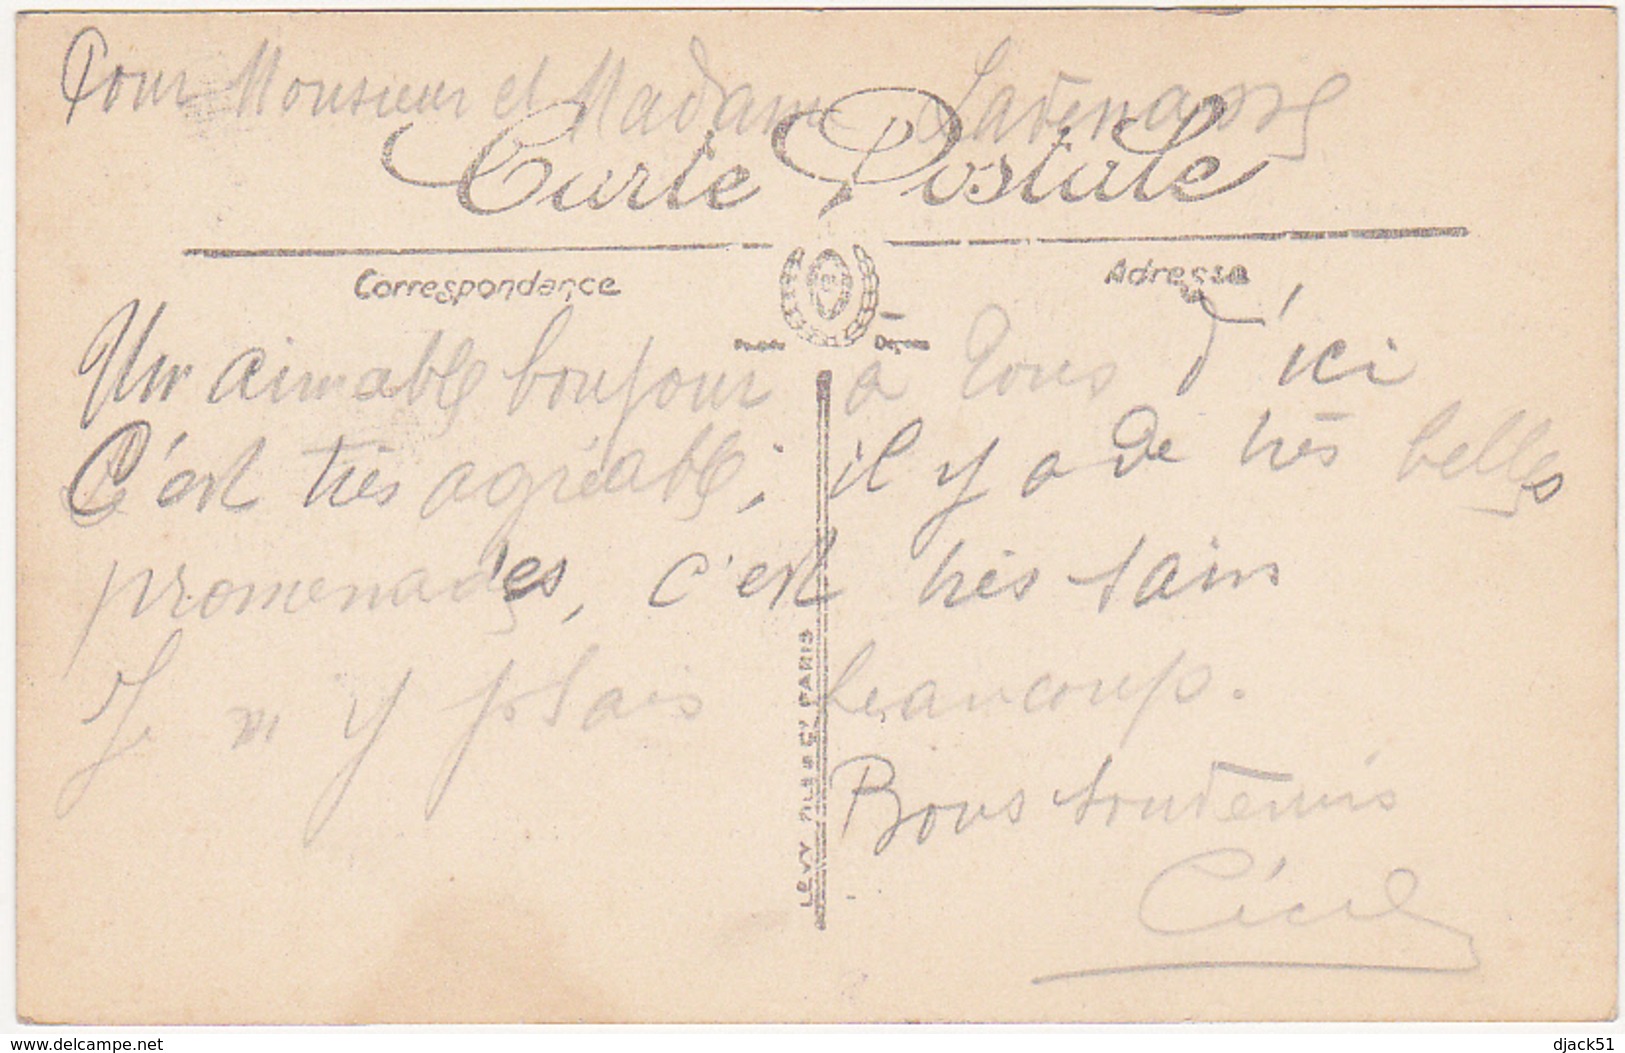 Pour Monsieur et Madame
Carte Postale
Correspondance
Adresse
Un aimable bonjour à tous d'ici
C'est très agréable, il y a de très belles
promenades, c'est très sain
Je m'y plais beaucoup.
Bons souvenirs
Cécile
LEVY FILS & Cie PARIS
www.delcampe.net
djack51